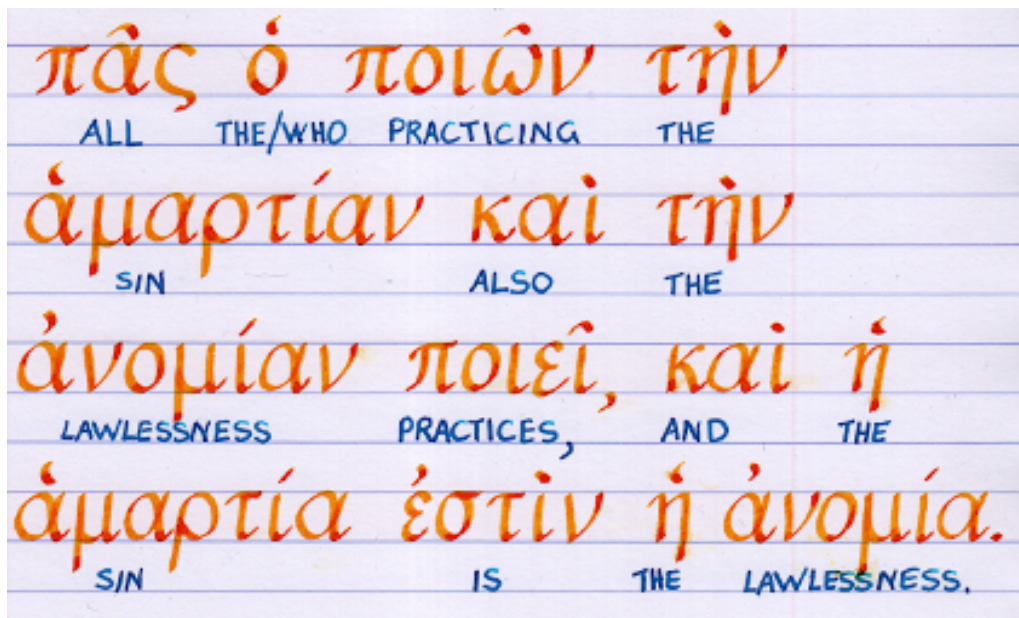 πᾶς ὁ ποιῶν τὴν
ALL THE/WHO PRACTICING THE
ἁμαρτίαν καὶ τὴν
SIN ALSO THE
ἀνομίαν ποιεῖ, καὶ ἡ
LAWLESSNESS PRACTICES, AND THE
ἁμαρτία ἐστὶν ἡ ἀνομία.
SIN IS THE LAWLESSNESS.